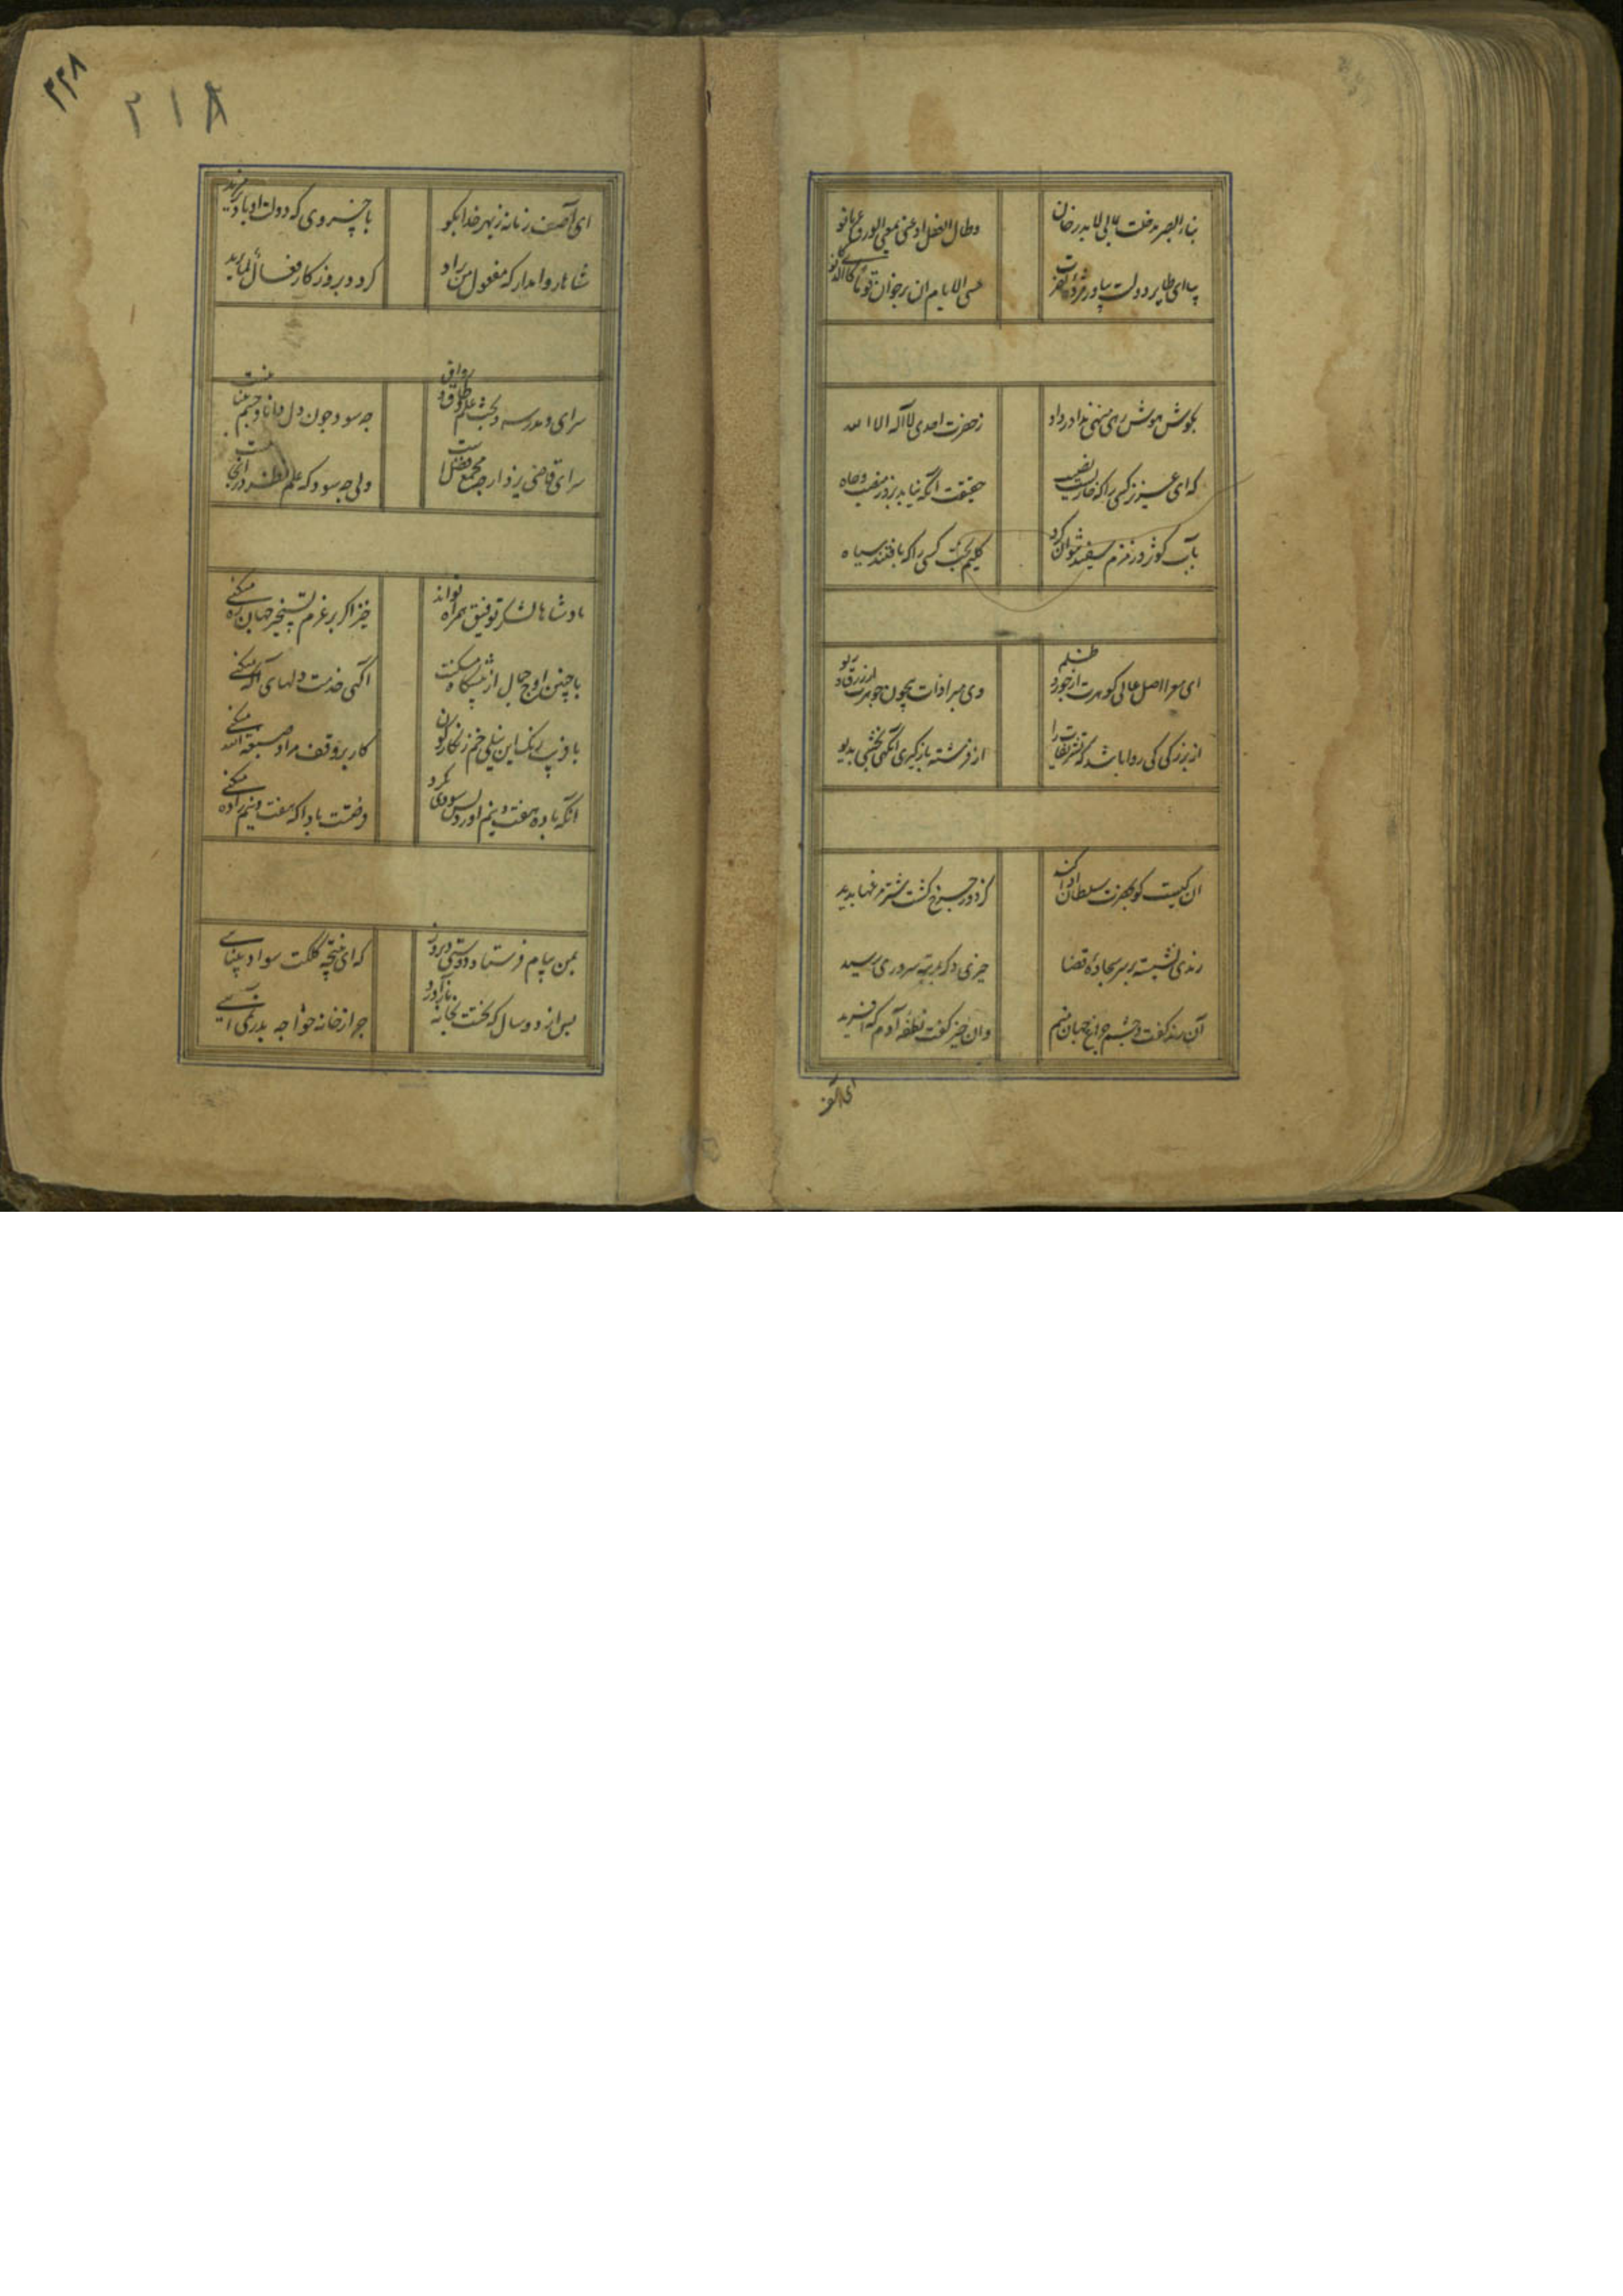 وطال الفضل
بیا ای طایر دولت بیاور
عسی الایام ان یرجعن قوما کالذی کانوا
بگوش هوش رهی منهی ندا در داد
ز حضرت احدی لا اله الا الله
که ای عزیز کسی را که خواریست نصیب
حقیقت آنکه نیابد بزور منصب و جاه
بآب کوثر و زمزم سفید نتوان کرد
کلیم بخت کسی را که بافتند سیاه
ای معرا اصل عالی گوهرت از
وی مبرا ذات
از بزرگی کی روا باشد که تشریفات را
از فرشته بازگیری آنگهی بخشی بدیو
آن کیست کو بحضرت سلطان ادا کند
کز دور چرخ گشت شتر غمها پدید
رندی نشسته بر سر سجاده قضا
حیزی دگر بمرتبه سروری رسید
آن رند گفت چشم و چراغ جهان منم
وان حیز گفت نطفه آدم که آفرید
۲۲۸
۲۱۸
ای آصف زمانه ز بهر خدا بگو
با خسروی که دولت او باد بر مزید
شاها روا مدار که مفعول من یراد
گردد بروز کار فعال لما یرید
سرای و مدرسه و بحث علم و طاق و رواق
چه سود چون دل دانا و چشم بینا نیست
سرای قاضی یزد ارچه مجمع فضل است
ولی چه سود که علم نظر در آنجا نیست
پادشاها لشکر توفیق همراه تواند
خیز اگر بر عزم تسخیر جهان ره میکنی
با چنین اوج جلال از پیشگاه مسکنت
آگهی خدمت دلهای آگه میکنی
با فریب رنگ این نیلی خم زنگارگون
کار بر وقف مراد صبغة الله میکنی
آنکه با ده هفت و نیم آورد بس سودی نکرد
فرصتت بادا که هفت و نیم را ده میکنی
بمن پیام فرستاد دوستی دیروز
که ای نتیجه کلکت سواد بینایی
پس از دو سال که بختت بخانه باز آورد
چرا ز خانه خواجه بدر نمی آیی